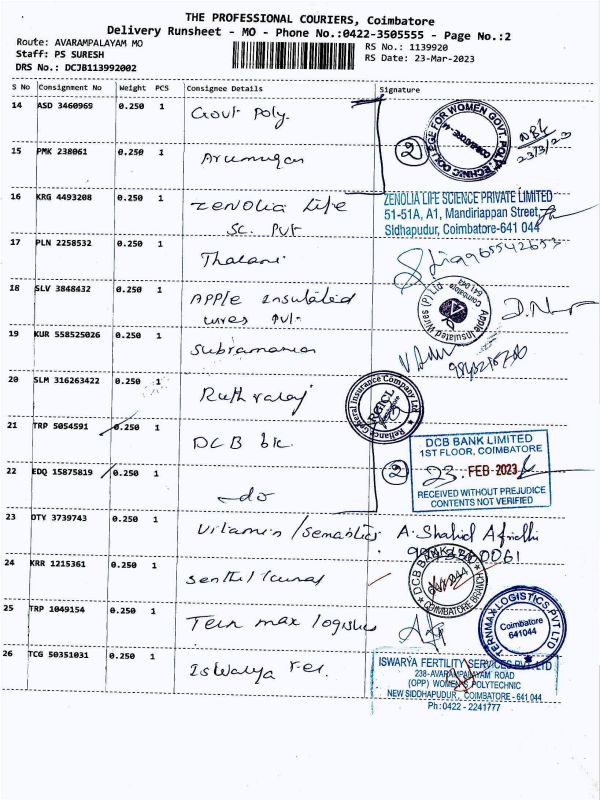 THE PROFESSIONAL COURIERS, Coimbatore
Delivery Runsheet - MO - Phone No.:0422-3505555 - Page No.:2
Route: AVARAMPALAYAM MO
RS No.: 1139920
Staff: PS SURESH
RS Date: 23-Mar-2023
DRS No.: DCJB113992002
S No Consignment No Weight PCS Consignee Details Signature
14 ASD 3460969 0.250 1 Govt Poly.
COLLEGE FOR WOMEN GOVT. POLY COIMBATORE
2
23/3/23
15 PMK 238061 0.250 1 Arumugan
16 KRG 4493208 0.250 1 Zenolia Life
Sc. Pvt
ZENOLIA LIFE SCIENCE PRIVATE LIMITED
51-51A, A1, Mandiriappan Street,
Sidhapudur, Coimbatore-641 044
17 PLN 2258532 0.250 1
18 SLV 3848432 0.250 1 Apple Insulated
wires Pvt.
Apple Insulated Wires (P) Ltd. Coimbatore 641 043
19 KUR 558525026 0.250 1 Subramanian
20 SLM 316263422 0.250 1
Reliance General Insurance Company Ltd
21 TRP 5054591 0.250 1 DCB bk
DCB BANK LIMITED
1ST FLOOR, COIMBATORE
23. FEB 2023
RECEIVED WITHOUT PREJUDICE
CONTENTS NOT VERIFIED
22 EDQ 15875819 0.250 1 do
2
23 DTY 3739743 0.250 1 Vitamin/Semantics A. Shahid Afridhi
24 KRR 1215361 0.250 1
DCB BANK LTD COIMBATORE BRANCH
25 TRP 1049154 0.250 1 Tern max logistics
TERNMAX LOGISTICS PVT LTD
Coimbatore
641044
26 TCG 50351031 0.250 1 Iswarya Fer.
ISWARYA FERTILITY SERVICES PVT LTD
238-AVARAMPALAYAM ROAD
(OPP) WOMEN'S POLYTECHNIC
NEW SIDDHAPUDUR, COIMBATORE - 641 044
Ph:0422 - 2241777